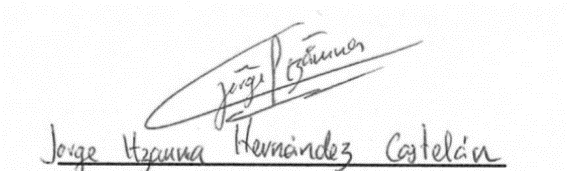 Jorge Itzamna
Jorge Itzamna Hernández Castelán